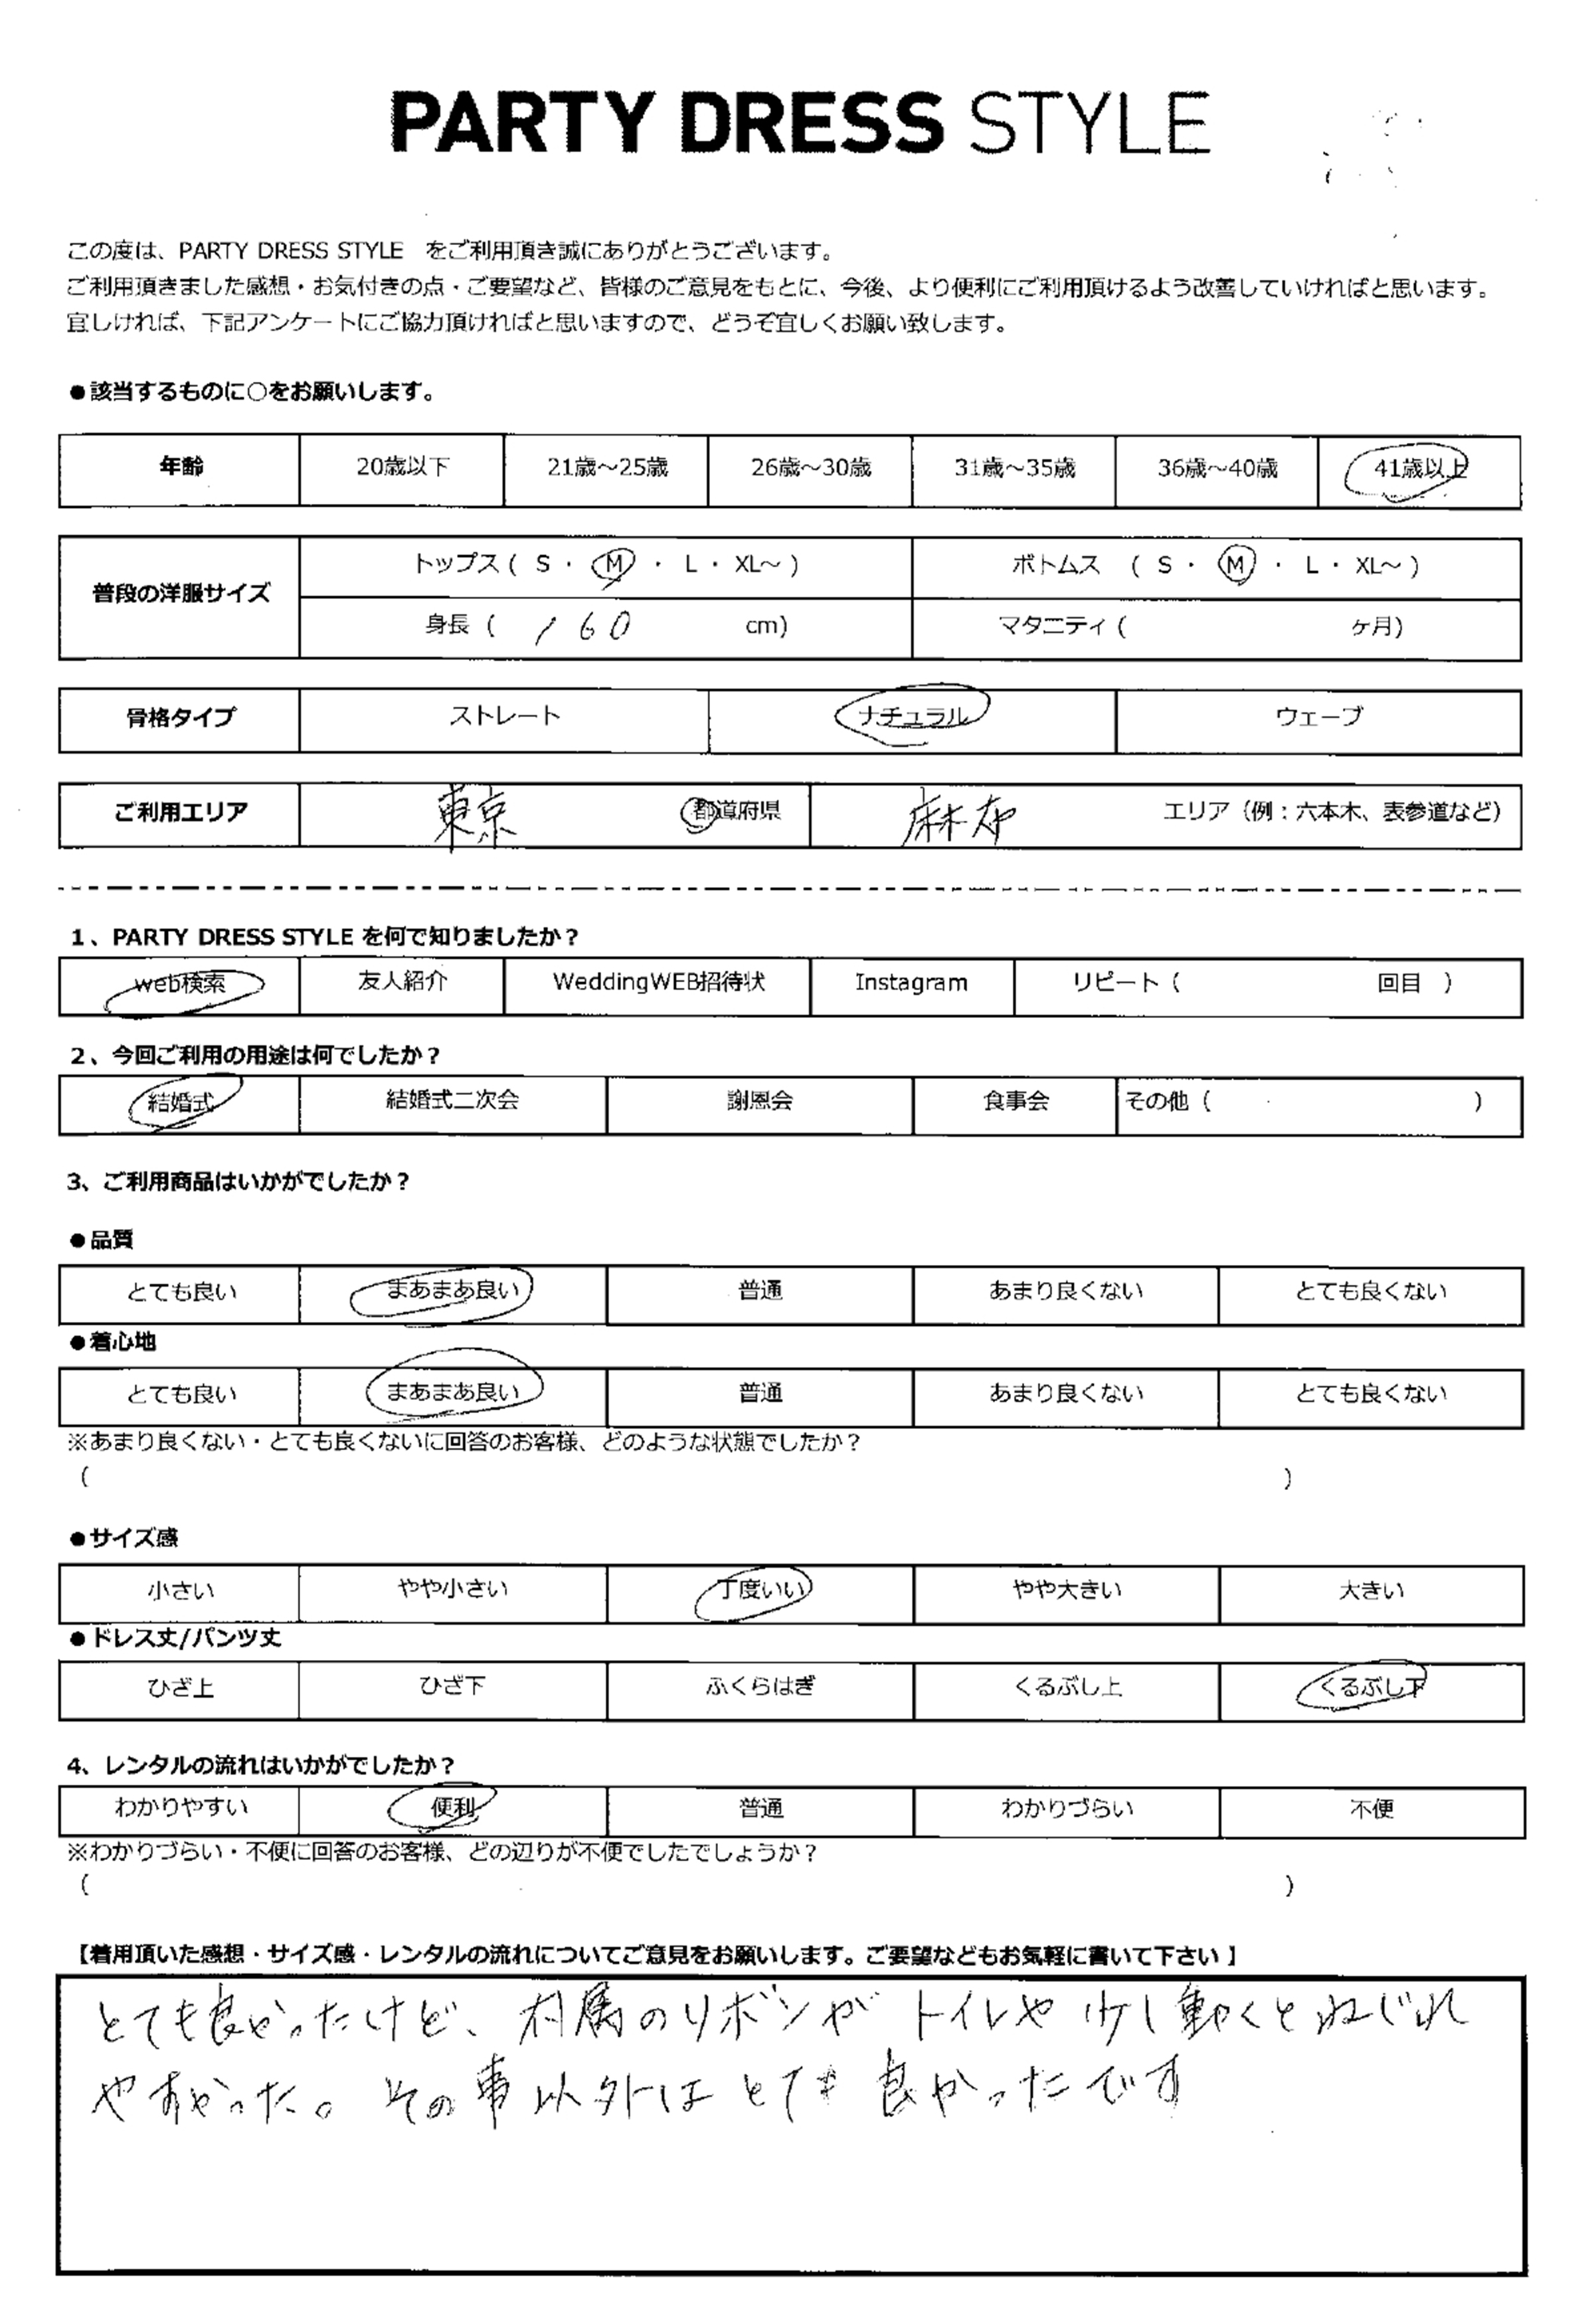 PARTY DRESS STYLE
この度は、PARTY DRESS STYLE をご利用頂き誠にありがとうございます。
ご利用頂きました感想・お気付きの点・ご要望など、皆様のご意見をもとに、今後、より便利にご利用頂けるよう改善していければと思います。
宜しければ、下記アンケートにご協力頂ければと思いますので、どうぞ宜しくお願い致します。
●該当するものに○をお願いします。
年齢 20歳以下 21歳～25歳 26歳～30歳 31歳～35歳 36歳～40歳 41歳以上
普段の洋服サイズ
トップス ( S ・ M ・ L ・ XL～ ) ボトムス ( S ・ M ・ L ・ XL～ )
身長 ( 160 cm) マタニティ ( ヶ月)
骨格タイプ ストレート ナチュラル ウェーブ
ご利用エリア 東京 都道府県 麻布 エリア（例：六本木、表参道など）
1、PARTY DRESS STYLE を何で知りましたか？
web検索 友人紹介 WeddingWEB招待状 Instagram リピート（ 回目 ）
2、今回ご利用の用途は何でしたか？
結婚式 結婚式二次会 謝恩会 食事会 その他（ ）
3、ご利用商品はいかがでしたか？
●品質
とても良い まあまあ良い 普通 あまり良くない とても良くない
●着心地
とても良い まあまあ良い 普通 あまり良くない とても良くない
※あまり良くない・とても良くないに回答のお客様、どのような状態でしたか？
（ ）
●サイズ感
小さい やや小さい 丁度いい やや大きい 大きい
●ドレス丈/パンツ丈
ひざ上 ひざ下 ふくらはぎ くるぶし上 くるぶし下
4、レンタルの流れはいかがでしたか？
わかりやすい 便利 普通 わかりづらい 不便
※わかりづらい・不便に回答のお客様、どの辺りが不便でしたでしょうか？
（ ）
【着用頂いた感想・サイズ感・レンタルの流れについてご意見をお願いします。ご要望などもお気軽に書いて下さい】
とても良かったけど、付属のリボンが トイレや 少し動くとねじれ
やすかった。その事以外はとても良かったです